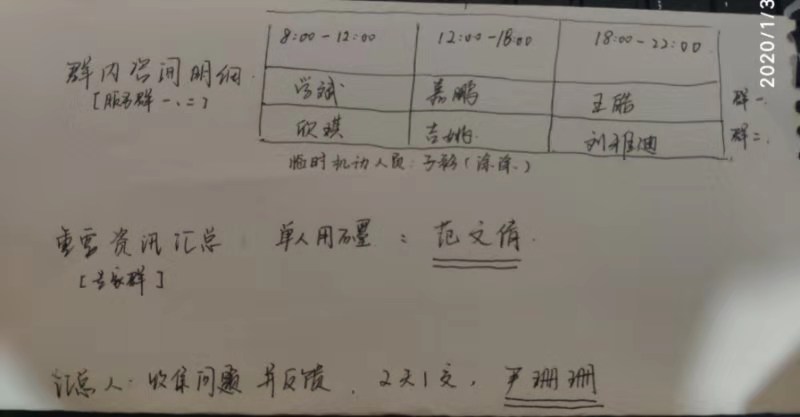 8:00-12:00 12:00-18:00 18:00-22:00
群内咨询明细.
[服务群一、二]
学斌 嘉鹏 王皓 群一.
欣琪 吉姚. 刘雅迪 群二.
临时机动人员:子彤(涂涂.)
资讯汇总 单人用石墨:范文倩.
[专家群]
汇总人:收集问题并反馈.2天1交.尹珊珊
2020/1/3